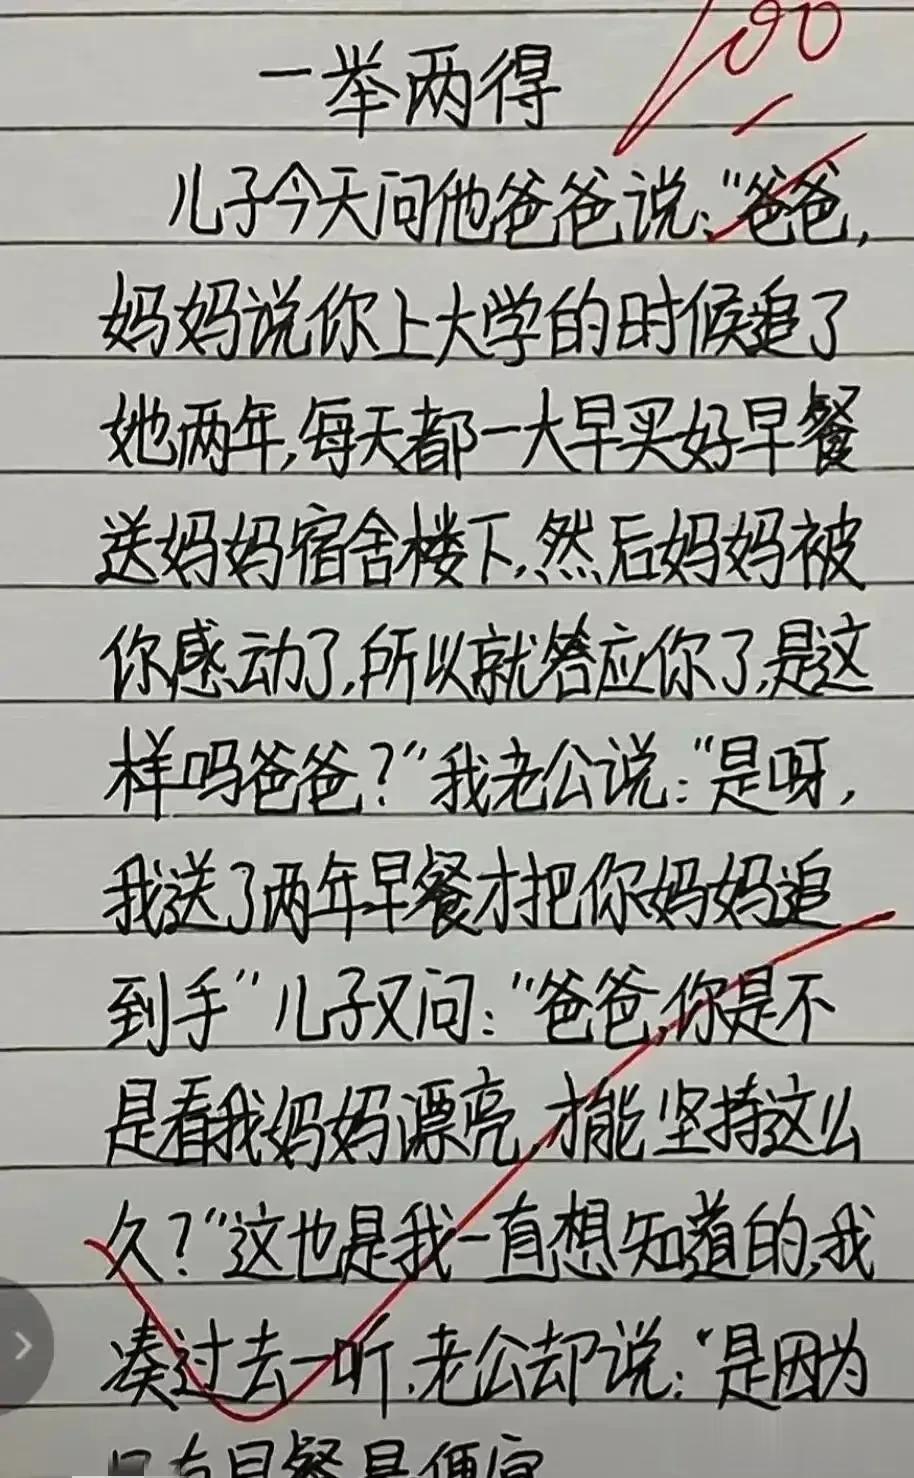 100
一举两得
儿子今天问他爸爸说:“爸爸,
妈妈说你上大学的时候追了
她两年,每天都一大早买好早餐
送妈妈宿舍楼下,然后妈妈被
你感动了,所以就答应你了,是这
样吗爸爸?”我老公说:“是呀,
我送了两年早餐才把你妈妈追
到手”儿子又问:“爸爸,你是不
是看我妈妈漂亮,才能坚持这么
久?”这也是我一直想知道的,我
凑过去一听,老公却说:“是因为
只有早餐最便宜